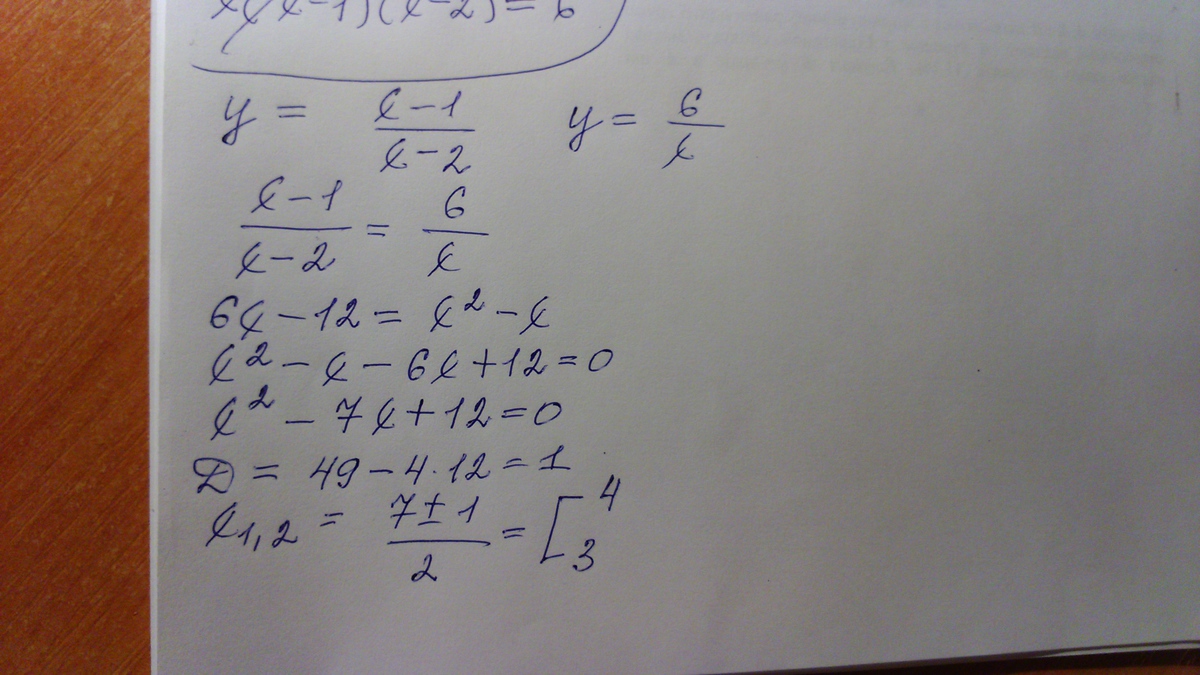 x(x-1)(x-2)=6
y = \frac{x-1}{x-2} y = \frac{6}{x}
\frac{x-1}{x-2} = \frac{6}{x}
6x-12 = x² - x
x² - x - 6x + 12 = 0
x² - 7x + 12 = 0
D = 49 - 4·12 = 1
x₁,₂ = \frac{7±1}{2} = [ 4 3